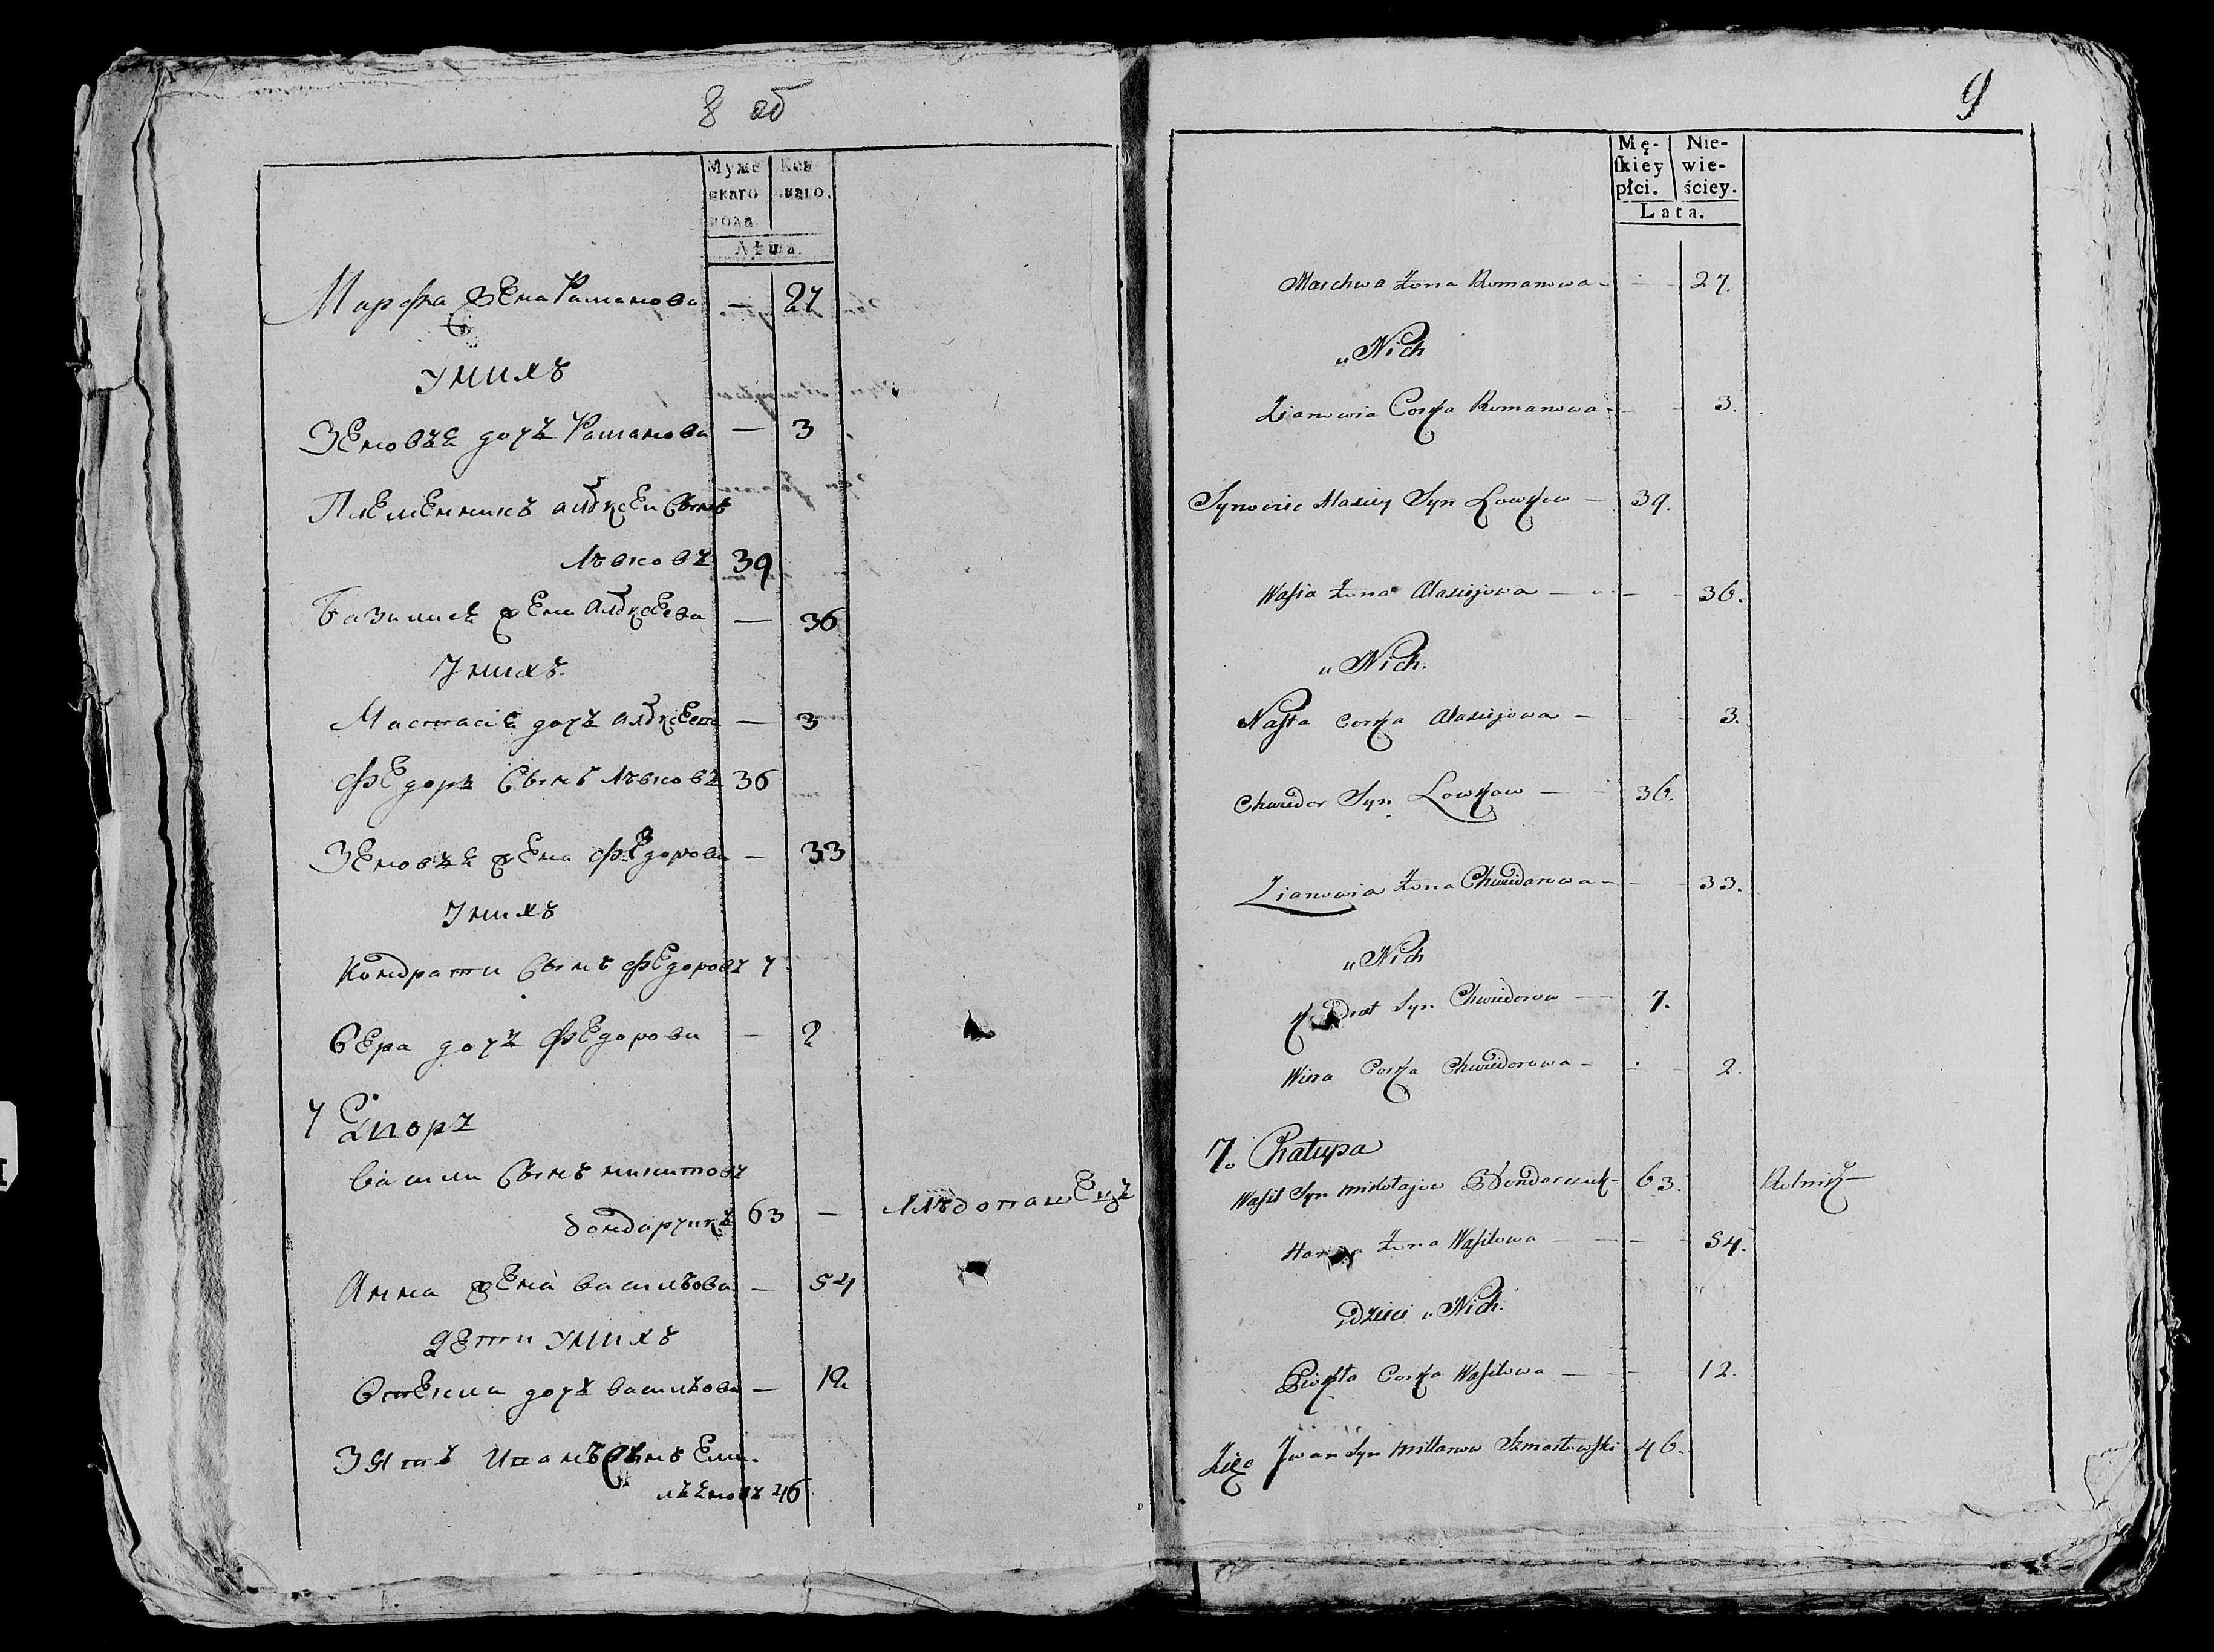 8 об
Муже
скаго
пола.
Жен
скаго.
Лѣта.
Марфа жена Романова — 27
У нихъ
Зеновѣя дочь Романова — 3
Племенникъ Алексеи Сынъ
Лѣвковъ 39
Василиса жена Алексеева — 36
У нихъ
Настасія дочь Алексеева — 3
Федоръ Сынъ Лѣвковъ 36
Зеновѣя жена Федорова — 33
У нихъ
Кондрати Сынъ Федоровъ 7
Вера дочь Федорова — 2
7 Дворъ
Васили Сынъ Никитовъ
бондарчикъ 63 — Хлѣбопашецъ
Анна жена Васильова — 54
Дети У нихъ
Стекла дочь Васильова — 12
Зять Иванъ Сынъ Еме-
льяновъ 46
9
Mę-
skiey
płci.
Nie-
wie-
ściey.
Lata.
Marchwa Żona Romanowa — 27.
u Nich
Zianowia Corka Romanowa — 3.
Synowiec Alexiey Syn Lowkow — 39.
Wasia Żona Alexiejowa — 36.
u Nich.
Nasta Corka Alexiejowa — 3.
Chwiedor Syn Lowkow — 36.
Zianowia Żona Chwiedorowa — 33.
u Nich
Syn Chwiedorow — 7.
Wiera Corka Chwiedorowa — 2.
7. Chałupa
Wasil Syn Mikołajow Bondarczuk — 63. Rolnik —
Żona Wasilowa — 54.
Dzieci u Nich.
Corka Wasilowa — 12.
Zięć Jwan Syn Szmarłowski 46.